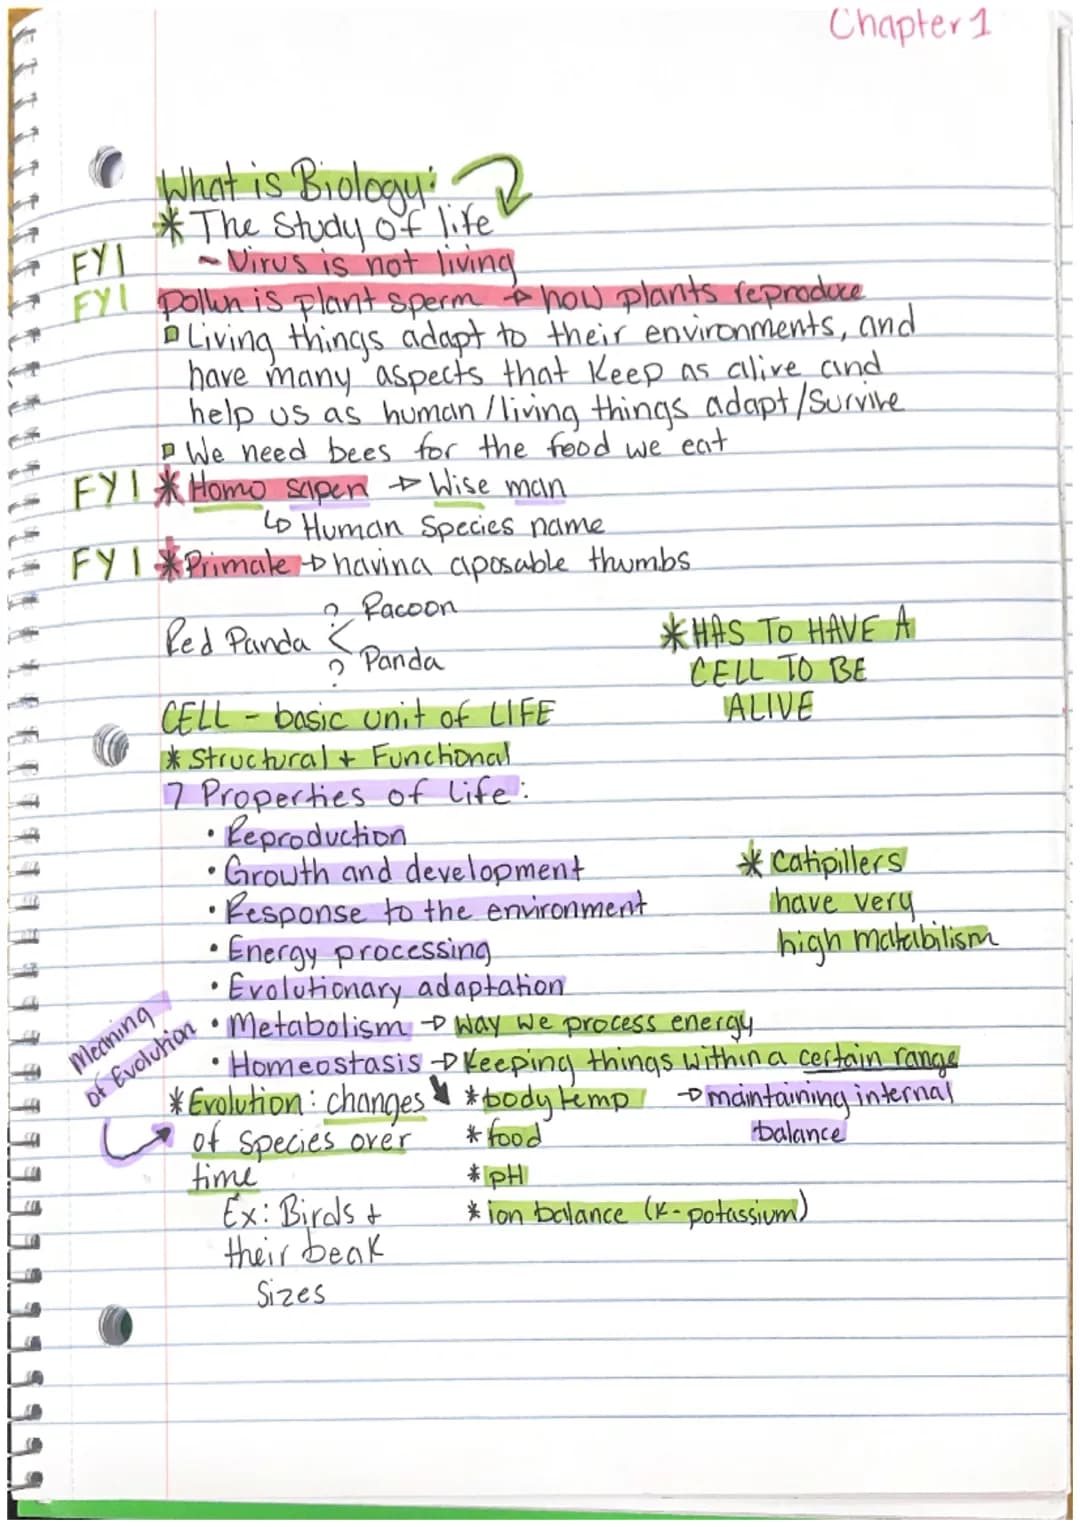 Chapter 1
What is Biology:
* The Study of life
FYI ~ Virus is not living
FYI pollen is plant sperm → how plants reproduce
Living things adapt to their environments, and
have many aspects that Keep as alive and
help us as human/living things adapt/Survive
We need bees for the food we eat
FYI * Homo sapen → Wise man
↳ Human Species name
FYI * Primate → havina aposable thumbs
? Racoon
Red Panda <
? Panda
* HAS TO HAVE A
CELL TO BE
ALIVE
CELL - basic unit of LIFE
* Structural + Functional
7 Properties of Life:
• Reproduction
• Growth and development
• Response to the environment
• Energy processing
• Evolutionary adaptation
• Metabolism → Way we process energy
• Homeostasis → Keeping things within a certain range
* Catipillers
have very
high matabilism
Meaning
of Evolution
* Evolution: changes
of species over
time
Ex: Birds +
their beak
Sizes
* body temp
* food
* pH
* ion balance (K-potassium)
→ maintaining internal
balance